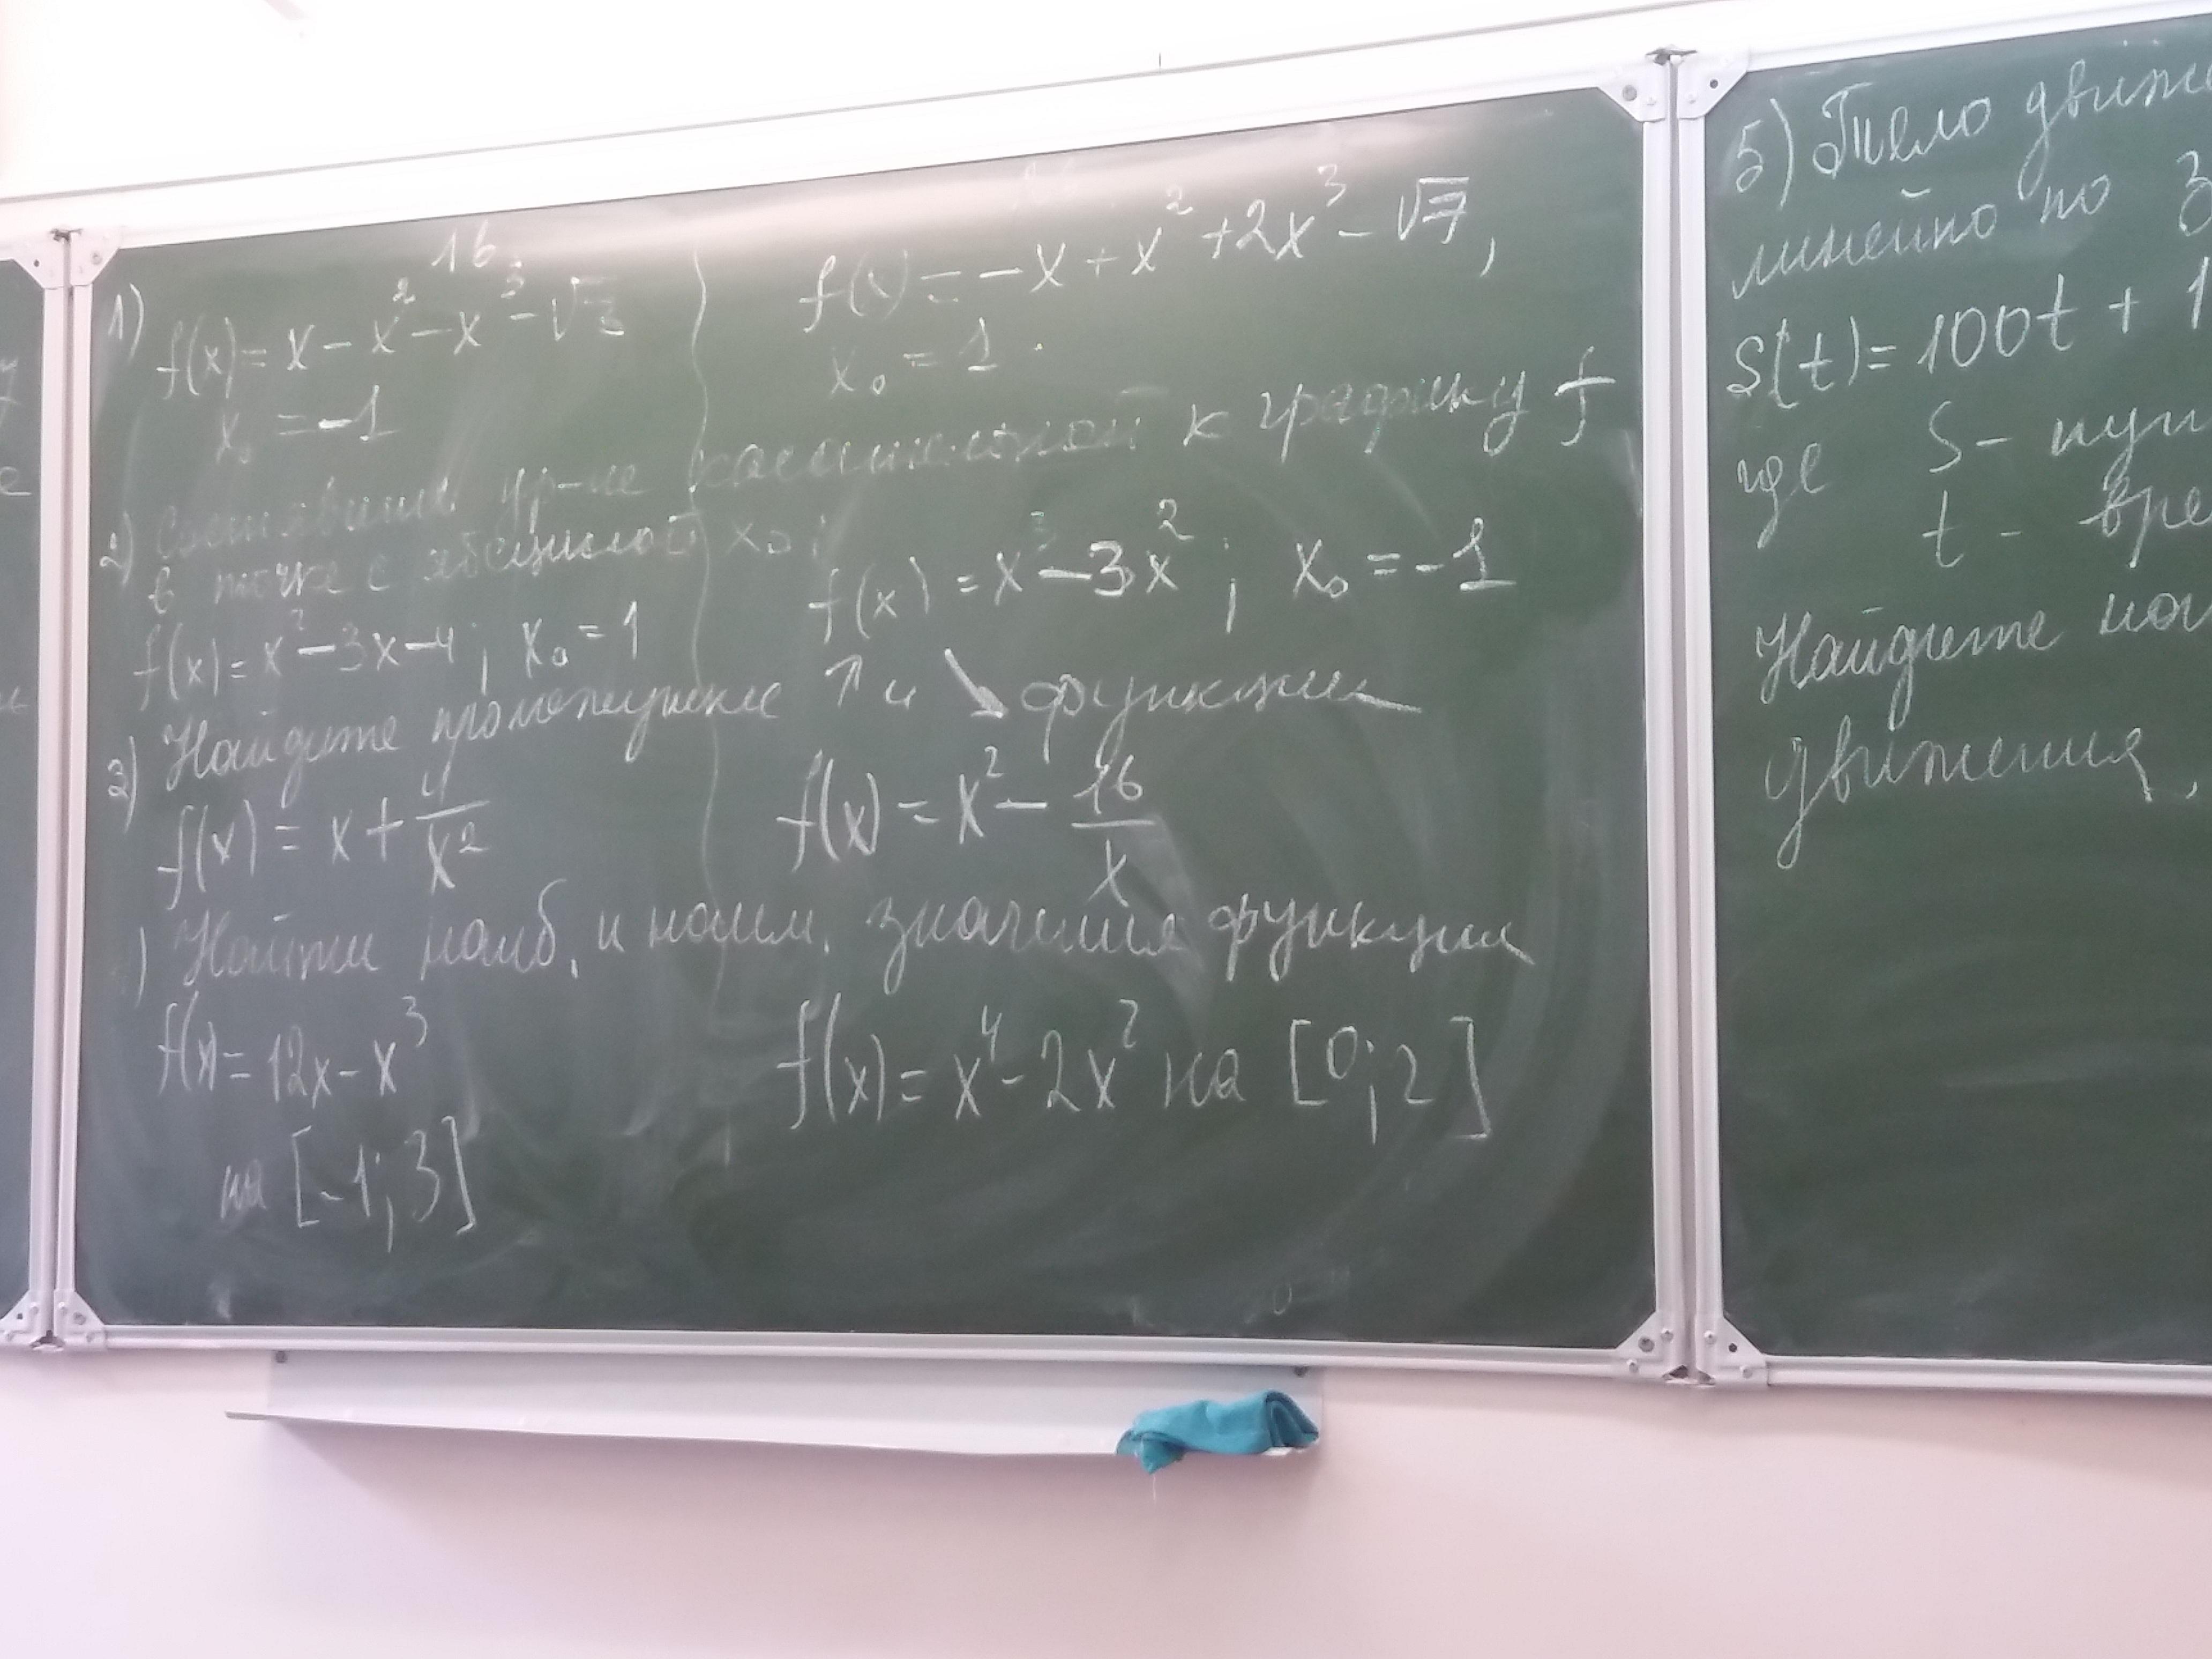 1б
1) f(x) = x - x² - x³ - √3
x₀ = -1
f(x) = -x + x² + 2x³ - √7,
x₀ = 1
2) Составьте ур-ие касательной к графику f
в точке с абсциссой x₀;
f(x) = x² - 3x - 4; x₀ = 1
f(x) = x³ - 3x²; x₀ = -1
3) Найдите промежутки ↑ и ↘ функции
f(x) = x + 4/x²
f(x) = x² - 16/x
) Найти наиб. и наим. значения функции
f(x) = 12x - x³
на [-1; 3]
f(x) = x⁴ - 2x² на [0; 2]
5) Тело движе
линейно по з
S(t) = 100t + 1
где S - пут
t - вре
Найдите
движения.